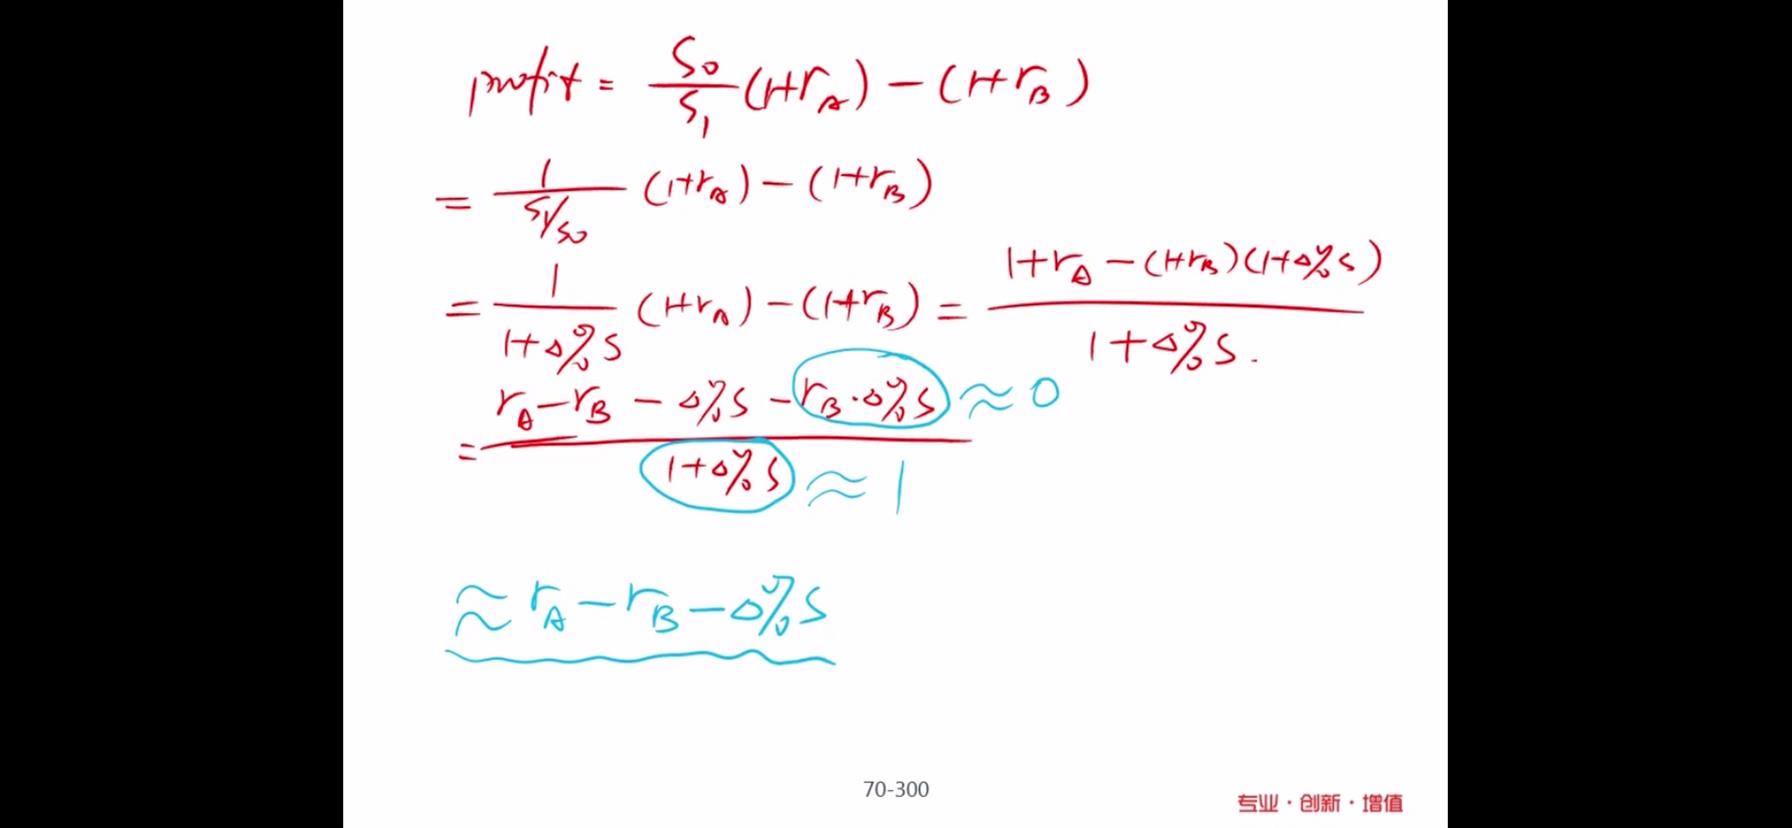 profit = S₀/S₁ (1+r_A) − (1+r_B)
= 1/(S₁/S₀) (1+r_A) − (1+r_B)
= 1/(1+Δ%S) (1+r_A) − (1+r_B) = (1+r_A − (1+r_B)(1+Δ%S))/(1+Δ%S).
= (r_A − r_B − Δ%S − r_B·Δ%S)/(1+Δ%S)
≈ 0
≈ 1
≈ r_A − r_B − Δ%S
70-300
专业·创新·增值